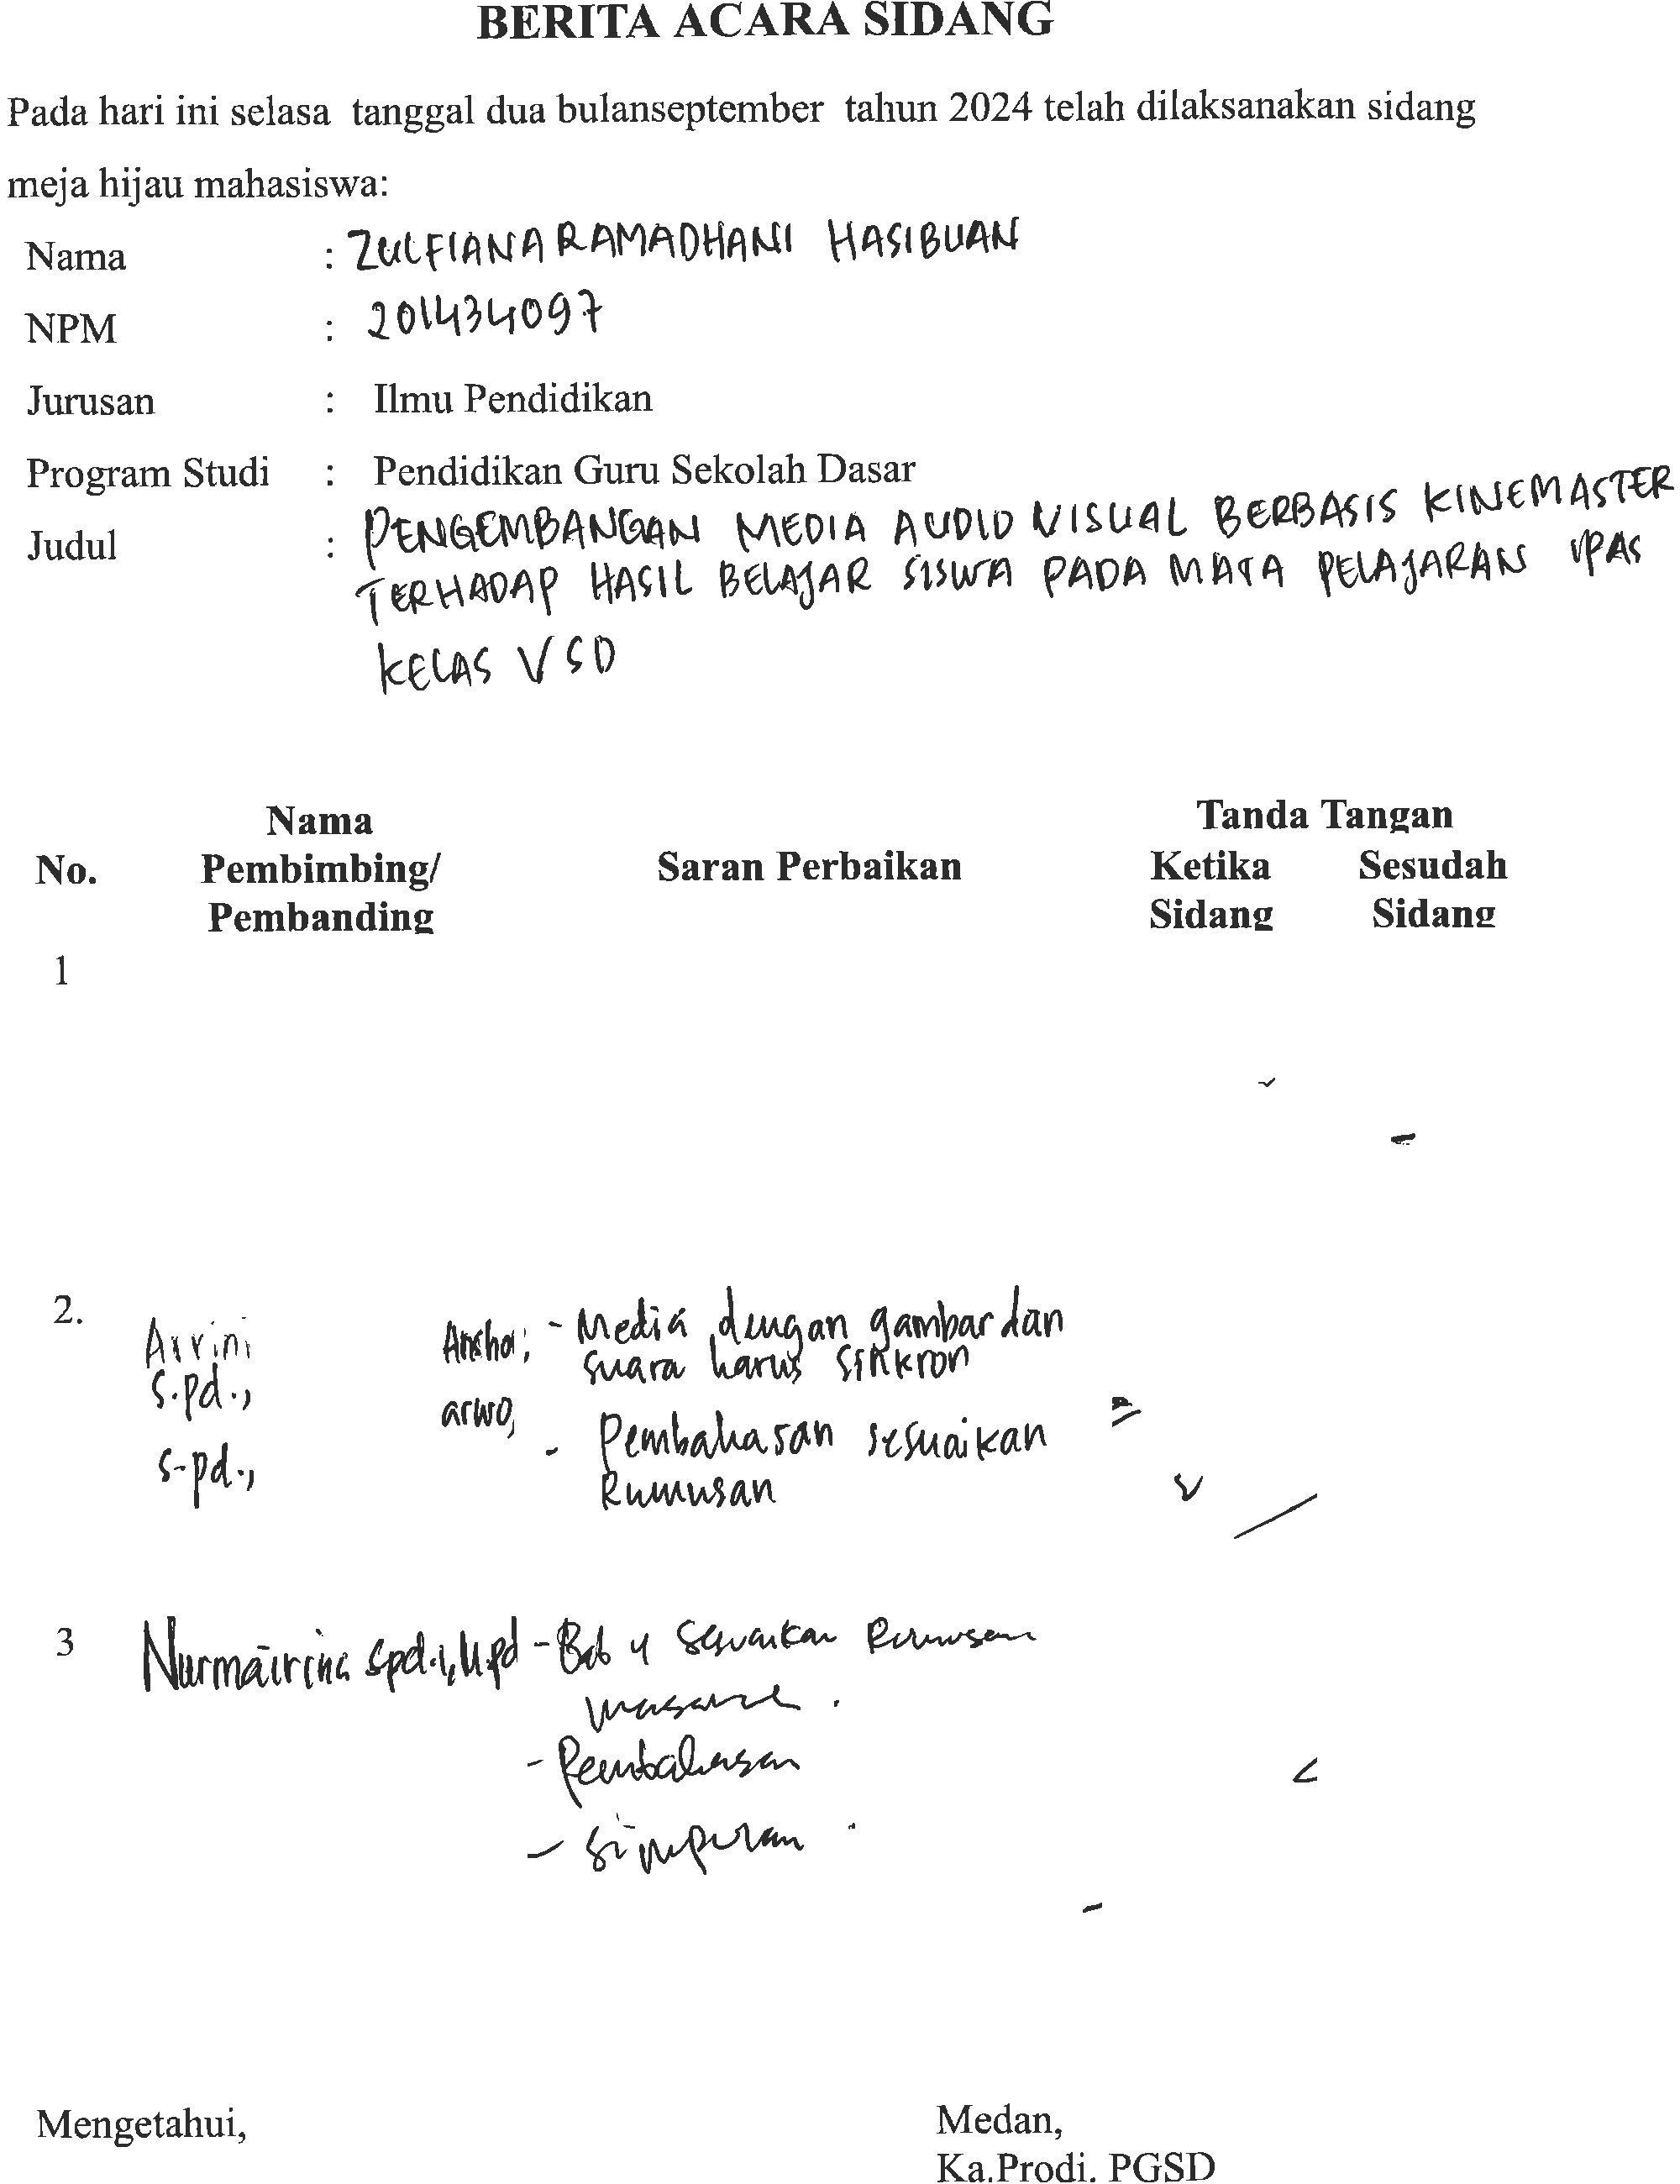 BERITA ACARA SIDANG
Pada hari ini selasa tanggal dua bulanseptember tahun 2024 telah dilaksanakan sidang
meja hijau mahasiswa:
Nama : ZULFIANA RAMADHANI HASIBUAN
NPM : 201434097
Jurusan : Ilmu Pendidikan
Program Studi : Pendidikan Guru Sekolah Dasar
Judul : PENGEMBANGAN MEDIA AUDIO VISUAL BERBASIS KINEMASTER
TERHADAP HASIL BELAJAR SISWA PADA MATA PELAJARAN IPAS
KELAS V SD
Nama Tanda Tangan
No. Pembimbing/ Saran Perbaikan Ketika Sesudah
Pembanding Sidang Sidang
1
2. - Media dengan gambar dan
S.pd., suara harus sinkron
- Pembahasan sesuaikan
S.pd., Rumusan
3 Nurmairina S.pd.i, M.pd - Bab 4 Sesuaikan Rumusan
- Pembahasan
- Simpulan
Mengetahui, Medan,
Ka.Prodi. PGSD